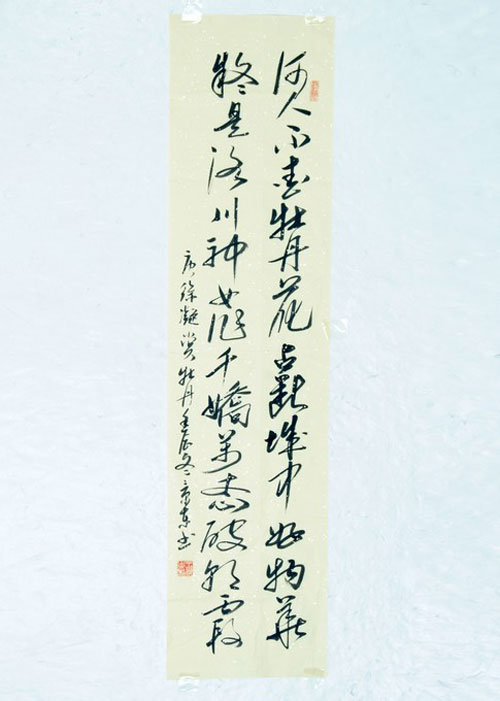 何人不爱牡丹花占断城中好物華
疑是洛川神女作千嬌萬态破朝霞
唐徐凝赏牡丹壬辰冬东书